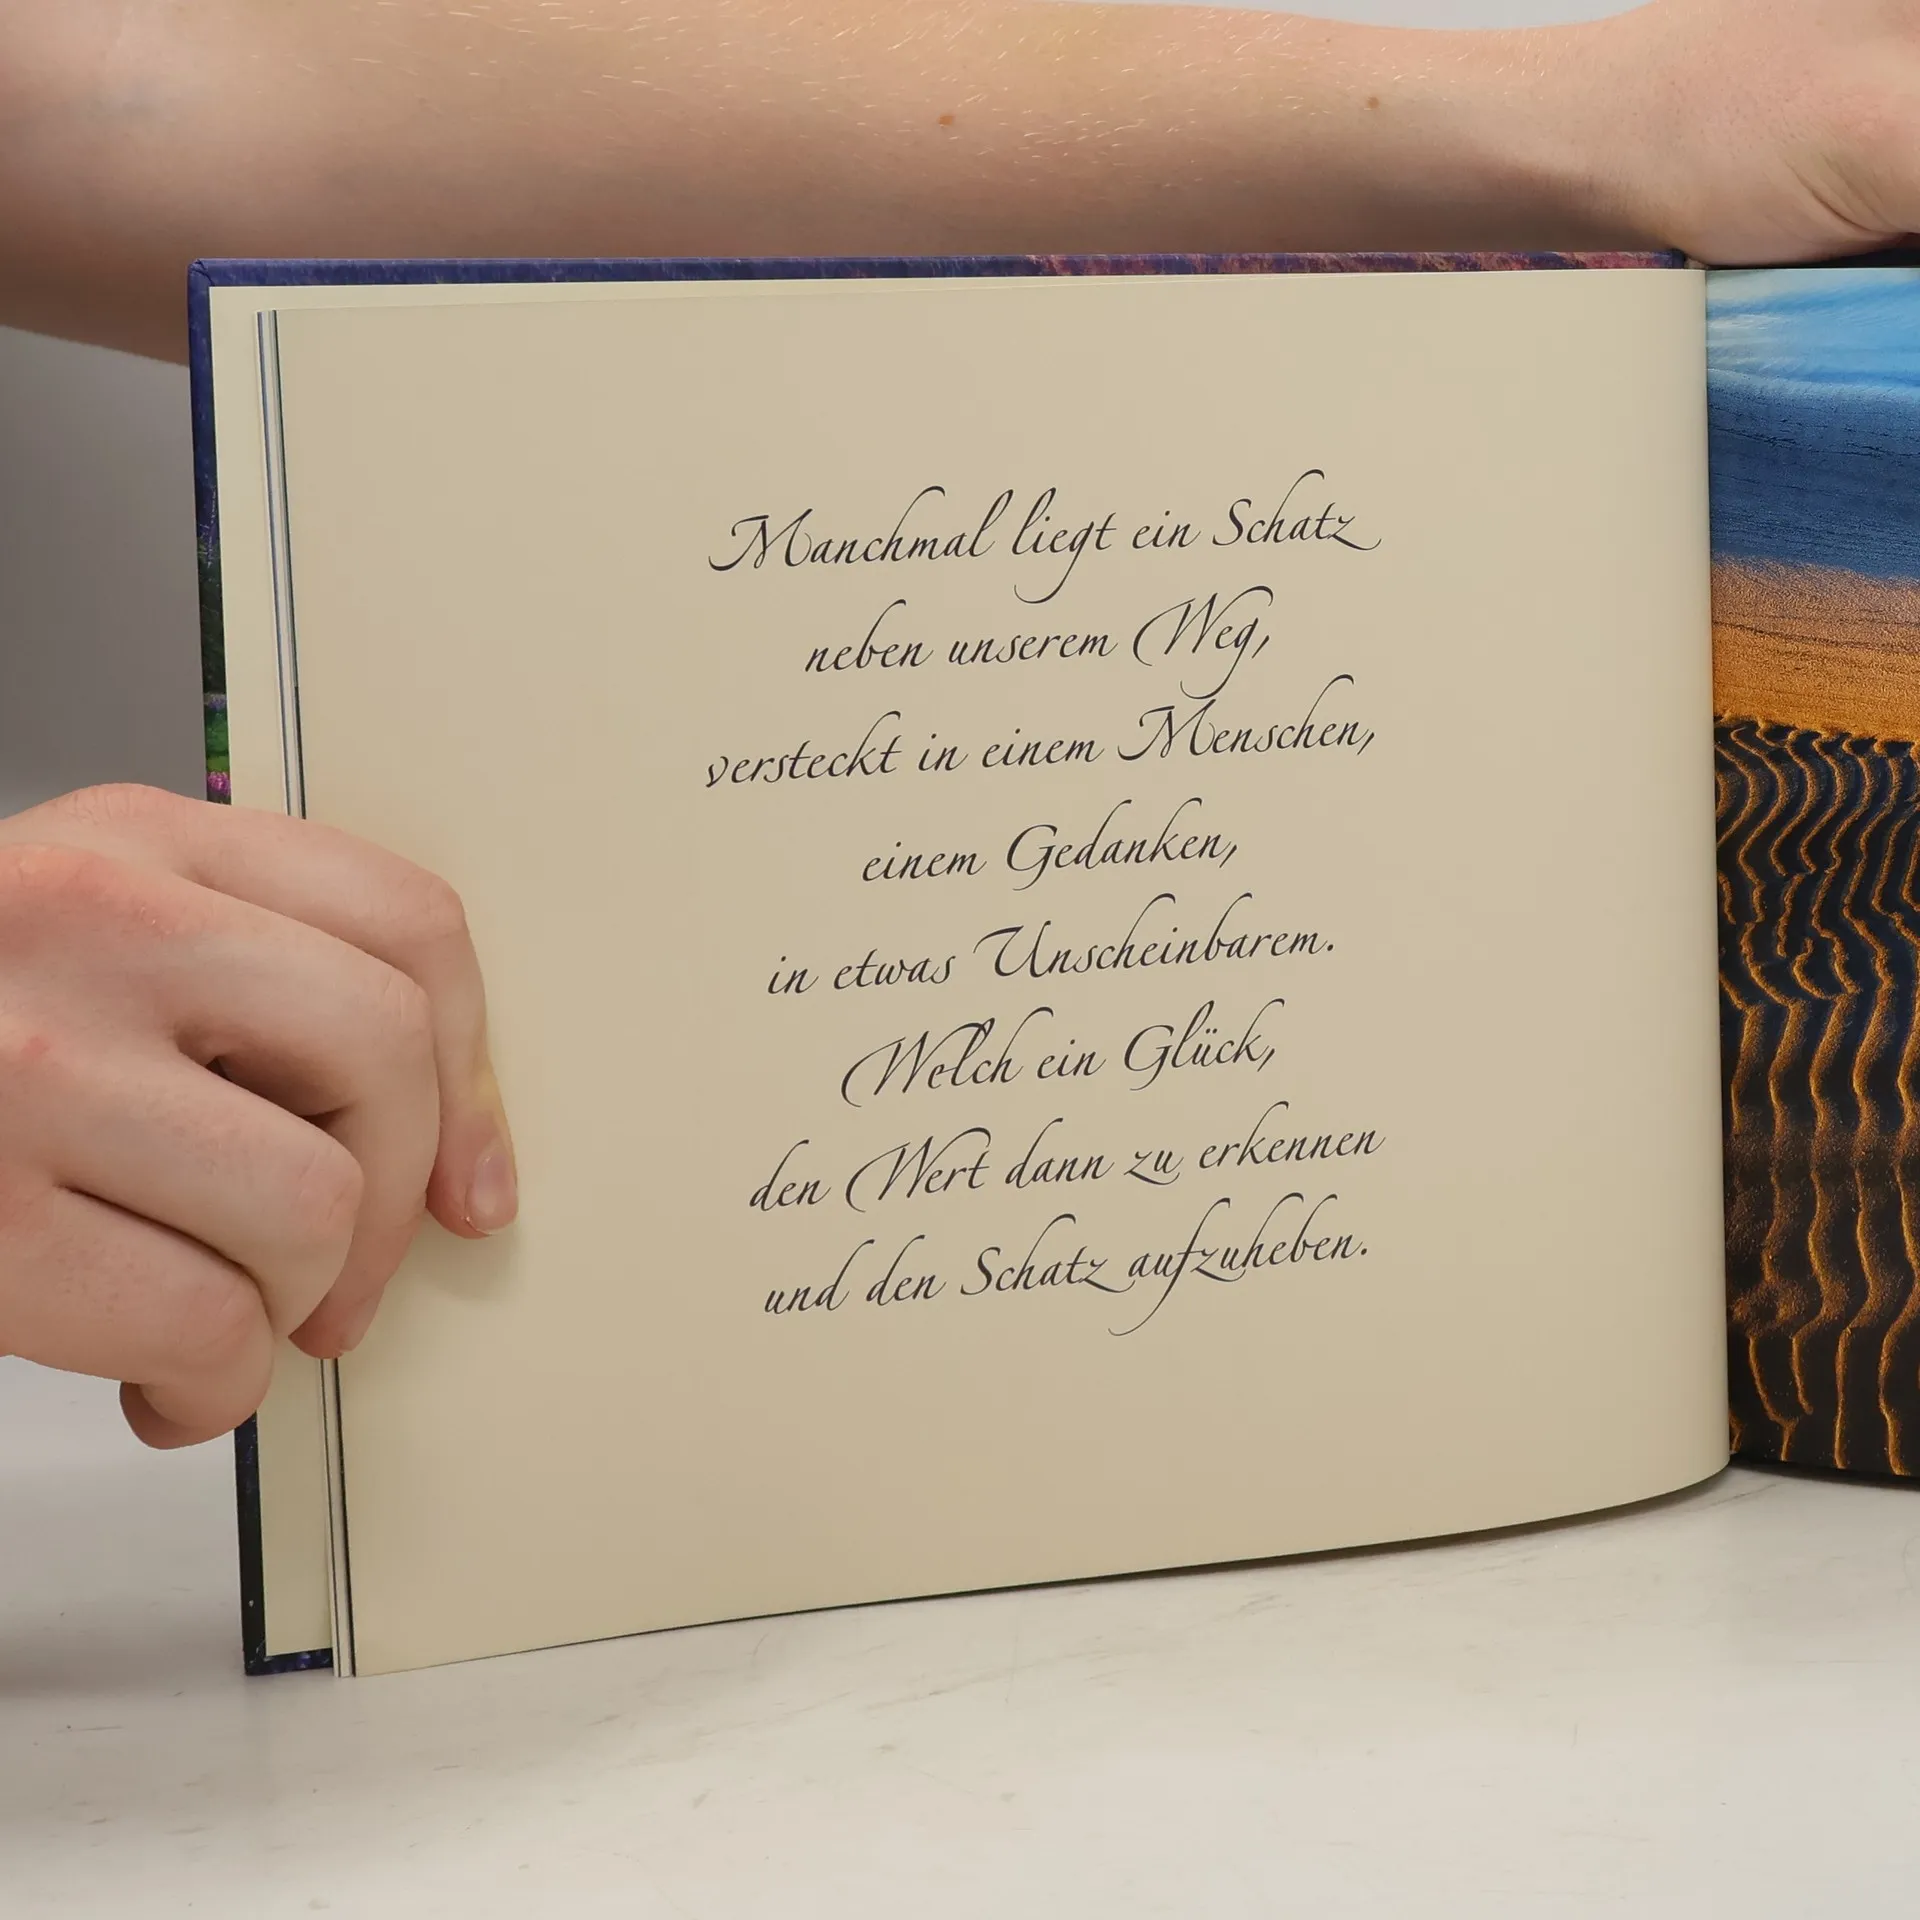 Manchmal liegt ein Schatz
neben unserem Weg,
versteckt in einem Menschen,
einem Gedanken,
in etwas Unscheinbarem.
Welch ein Glück,
den Wert dann zu erkennen
und den Schatz aufzuheben.